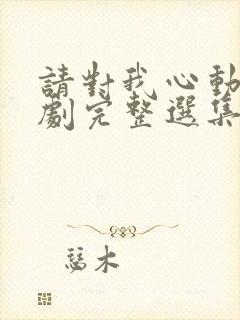 請對我心動
劇完整選集
慈木